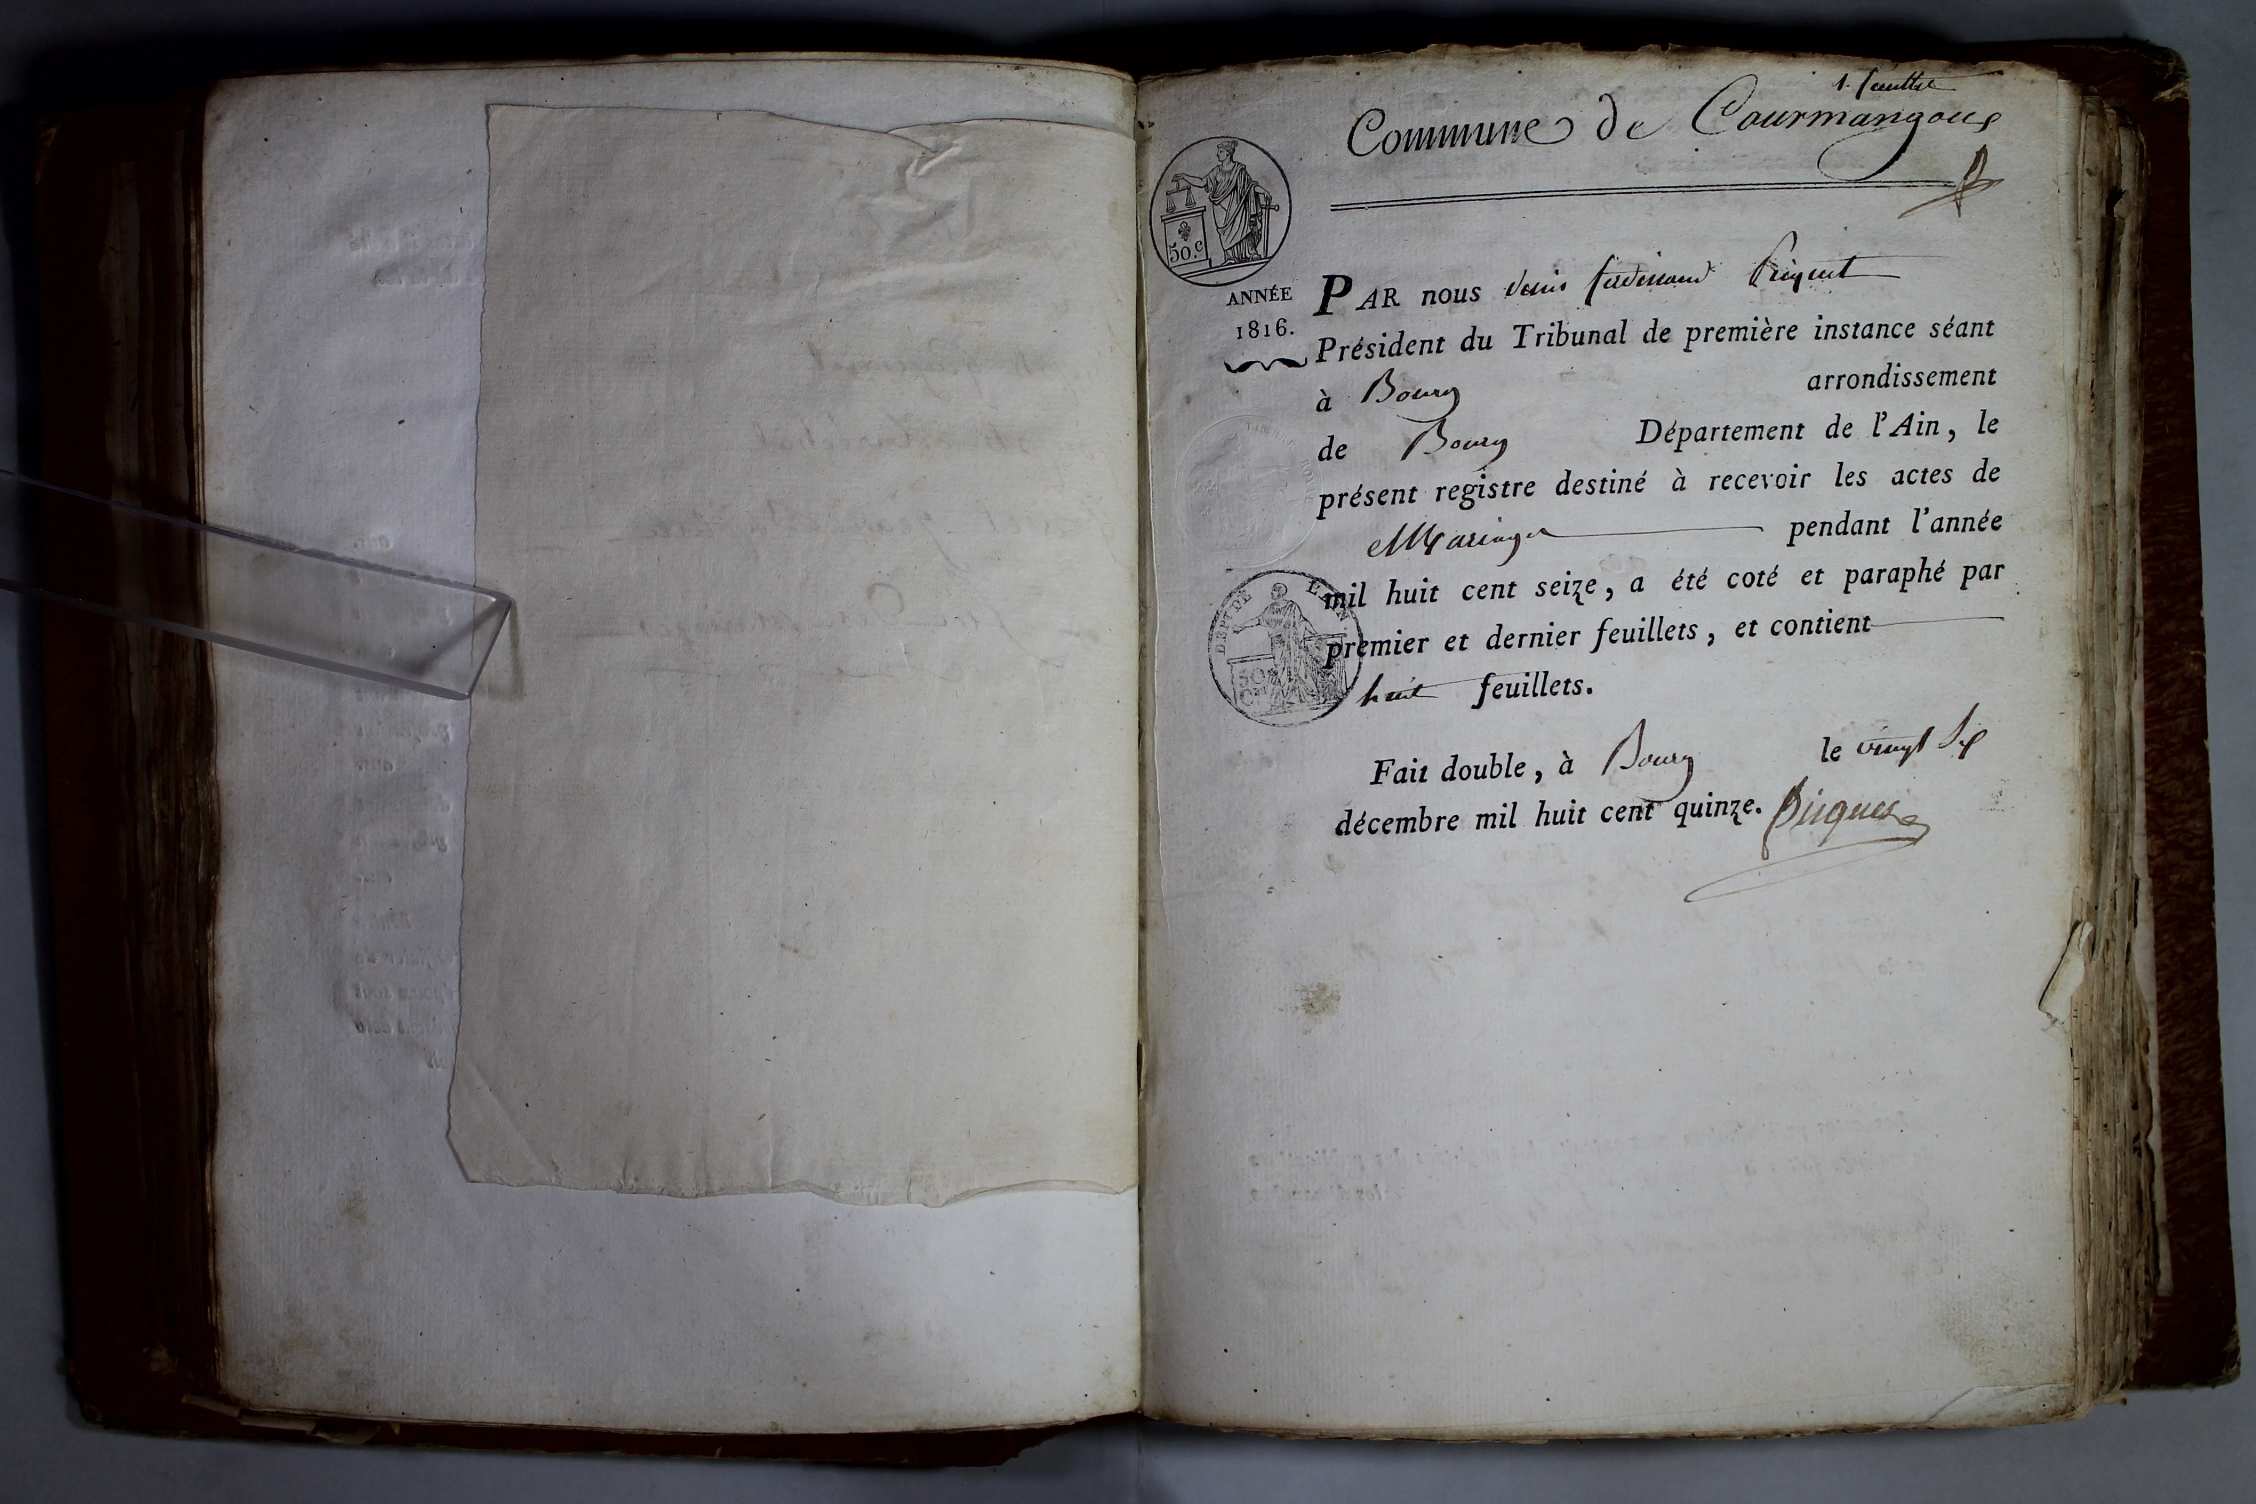 1. feuillet
Commune de Courmangoux
50.c
ANNÉE
1816.
PAR nous denis ferdinand Piquet
Président du Tribunal de première instance séant
à Bourg arrondissement
de Bourg Département de l'Ain, le
présent registre destiné à recevoir les actes de
Mariage pendant l'année
mil huit cent seize, a été coté et paraphé par
premier et dernier feuillets, et contient
huit feuillets.
DEPT DE L'AIN
50
Fait double, à Bourg le vingt Six
décembre mil huit cent quinze. Piquet